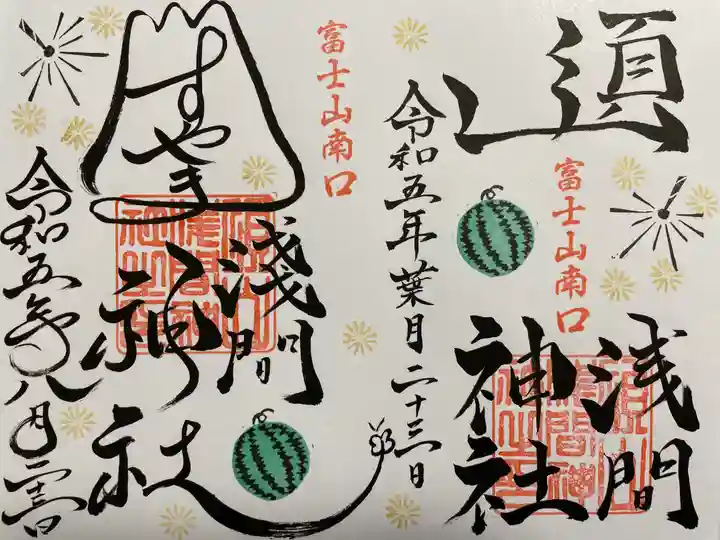 須山
富士山南口
浅間
神社
令和五年葉月二十三日
富士山南口
すやま
浅間
神社
令和五年八月二十三日